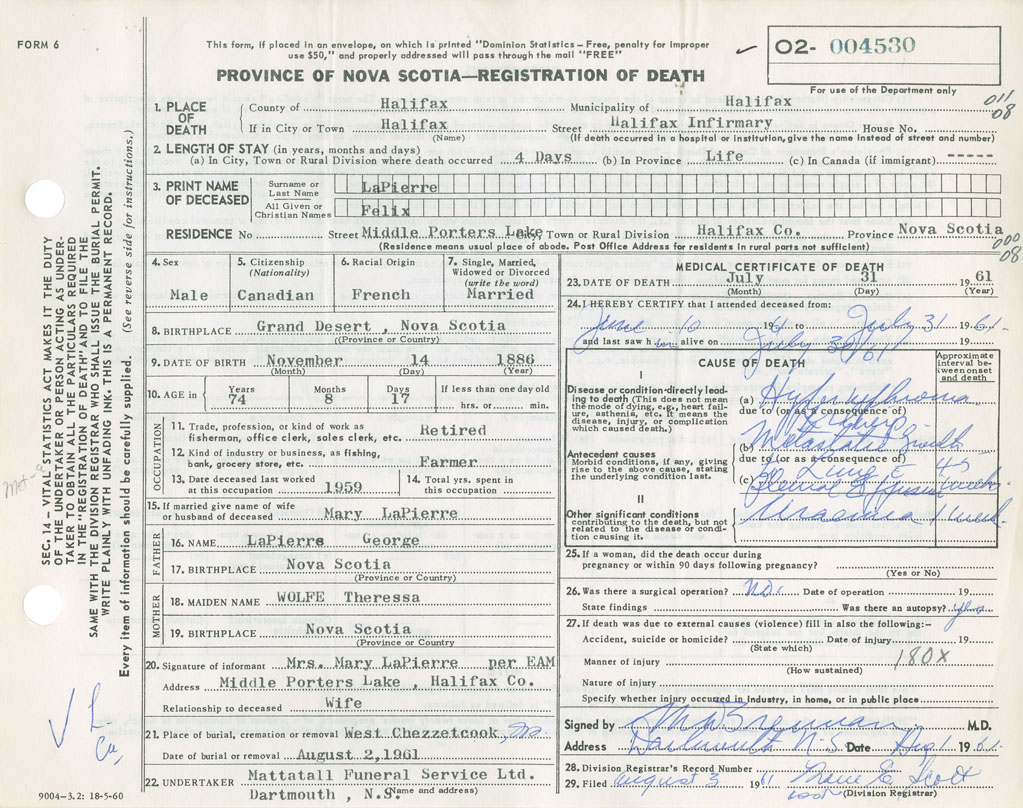 FORM 6
This form, if placed in an envelope, on which is printed "Dominion Statistics – Free, penalty for improper
use $50," and properly addressed will pass through the mail "FREE"
O2- 004530
For use of the Department only
PROVINCE OF NOVA SCOTIA—REGISTRATION OF DEATH
011
08
1. PLACE OF DEATH
County of Halifax Municipality of Halifax
If in City or Town Halifax Street Halifax Infirmary House No.
(Name) (If death occurred in a hospital or institution, give the name instead of street and number)
2. LENGTH OF STAY (in years, months and days)
(a) In City, Town or Rural Division where death occurred 4 Days (b) In Province Life (c) In Canada (if immigrant) -----
3. PRINT NAME OF DECEASED
Surname or Last Name LaPierre
All Given or Christian Names Felix
RESIDENCE No Street Middle Porters Lake City, Town or Rural Division Halifax Co. Province Nova Scotia
(Residence means usual place of abode. Post Office Address for residents in rural parts not sufficient)
000
08
4. Sex Male
5. Citizenship (Nationality) Canadian
6. Racial Origin French
7. Single, Married, Widowed or Divorced (write the word) Married
8. BIRTHPLACE Grand Desert , Nova Scotia
(Province or Country)
9. DATE OF BIRTH November 14 1886
(Month) (Day) (Year)
10. AGE in Years 74 Months 8 Days 17 If less than one day old hrs. or min.
OCCUPATION
11. Trade, profession, or kind of work as
fisherman, office clerk, sales clerk, etc. Retired
12. Kind of industry or business, as fishing,
bank, grocery store, etc. Farmer
13. Date deceased last worked at this occupation 1959
14. Total yrs. spent in this occupation
15. If married give name of wife
or husband of deceased Mary LaPierre
FATHER
16. NAME LaPierre George
17. BIRTHPLACE Nova Scotia
(Province or Country)
MOTHER
18. MAIDEN NAME WOLFE Theressa
19. BIRTHPLACE Nova Scotia
(Province or Country
20. Signature of informant Mrs. Mary LaPierre per EAM
Address Middle Porters Lake , Halifax Co.
Relationship to deceased Wife
21. Place of burial, cremation or removal West Chezzetcook,
Date of burial or removal August 2,1961
22. UNDERTAKER Mattatall Funeral Service Ltd.
Dartmouth , N.S. (Name and address)
MEDICAL CERTIFICATE OF DEATH
23. DATE OF DEATH July 31 1961
(Month) (Day) (Year)
24. I HEREBY CERTIFY that I attended deceased from:
June 10 1961 to July 31 1961
and last saw him alive on July 30/61 19
CAUSE OF DEATH
Approximate interval between onset and death
I
Disease or condition directly leading to death (This does not mean the mode of dying, e.g., heart failure, asthenia, etc. It means the disease, injury, or complication which caused death.)
(a) Hypernephroma
due to (or as a consequence of)
Antecedent causes
Morbid conditions, if any, giving rise to the above cause, stating the underlying condition last.
(b) Metastatic Growth
due to (or as a consequence of)
Lung &
(c) Pleural Effusion
II
Other significant conditions contributing to the death, but not related to the disease or condition causing it.
Uraemia 1 week
25. If a woman, did the death occur during
pregnancy or within 90 days following pregnancy?
(Yes or No)
26. Was there a surgical operation? No. Date of operation 19
State findings Was there an autopsy?
27. If death was due to external causes (violence) fill in also the following:–
Accident, suicide or homicide? Date of injury 19
(State which)
Manner of injury 180X
(How sustained)
Nature of injury
Specify whether injury occurred in industry, in home, or in public place
Signed by Brennan M.D.
Address Dartmouth N.S. Date Aug 1 1961
28. Division Registrar's Record Number
29. Filed august 3 1961 E. Scott
(Division Registrar)
SEC. 14 – VITAL STATISTICS ACT MAKES IT THE DUTY
OF THE UNDERTAKER OR PERSON ACTING AS UNDER-
TAKER TO OBTAIN ALL THE PARTICULARS REQUIRED
IN THE "REGISTRATION OF DEATH" AND TO FILE THE
SAME WITH THE DIVISION REGISTRAR WHO SHALL ISSUE THE BURIAL PERMIT.
WRITE PLAINLY WITH UNFADING INK. THIS IS A PERMANENT RECORD.
Every item of information should be carefully supplied. (See reverse side for instructions.)
9004-3.2: 18-5-60